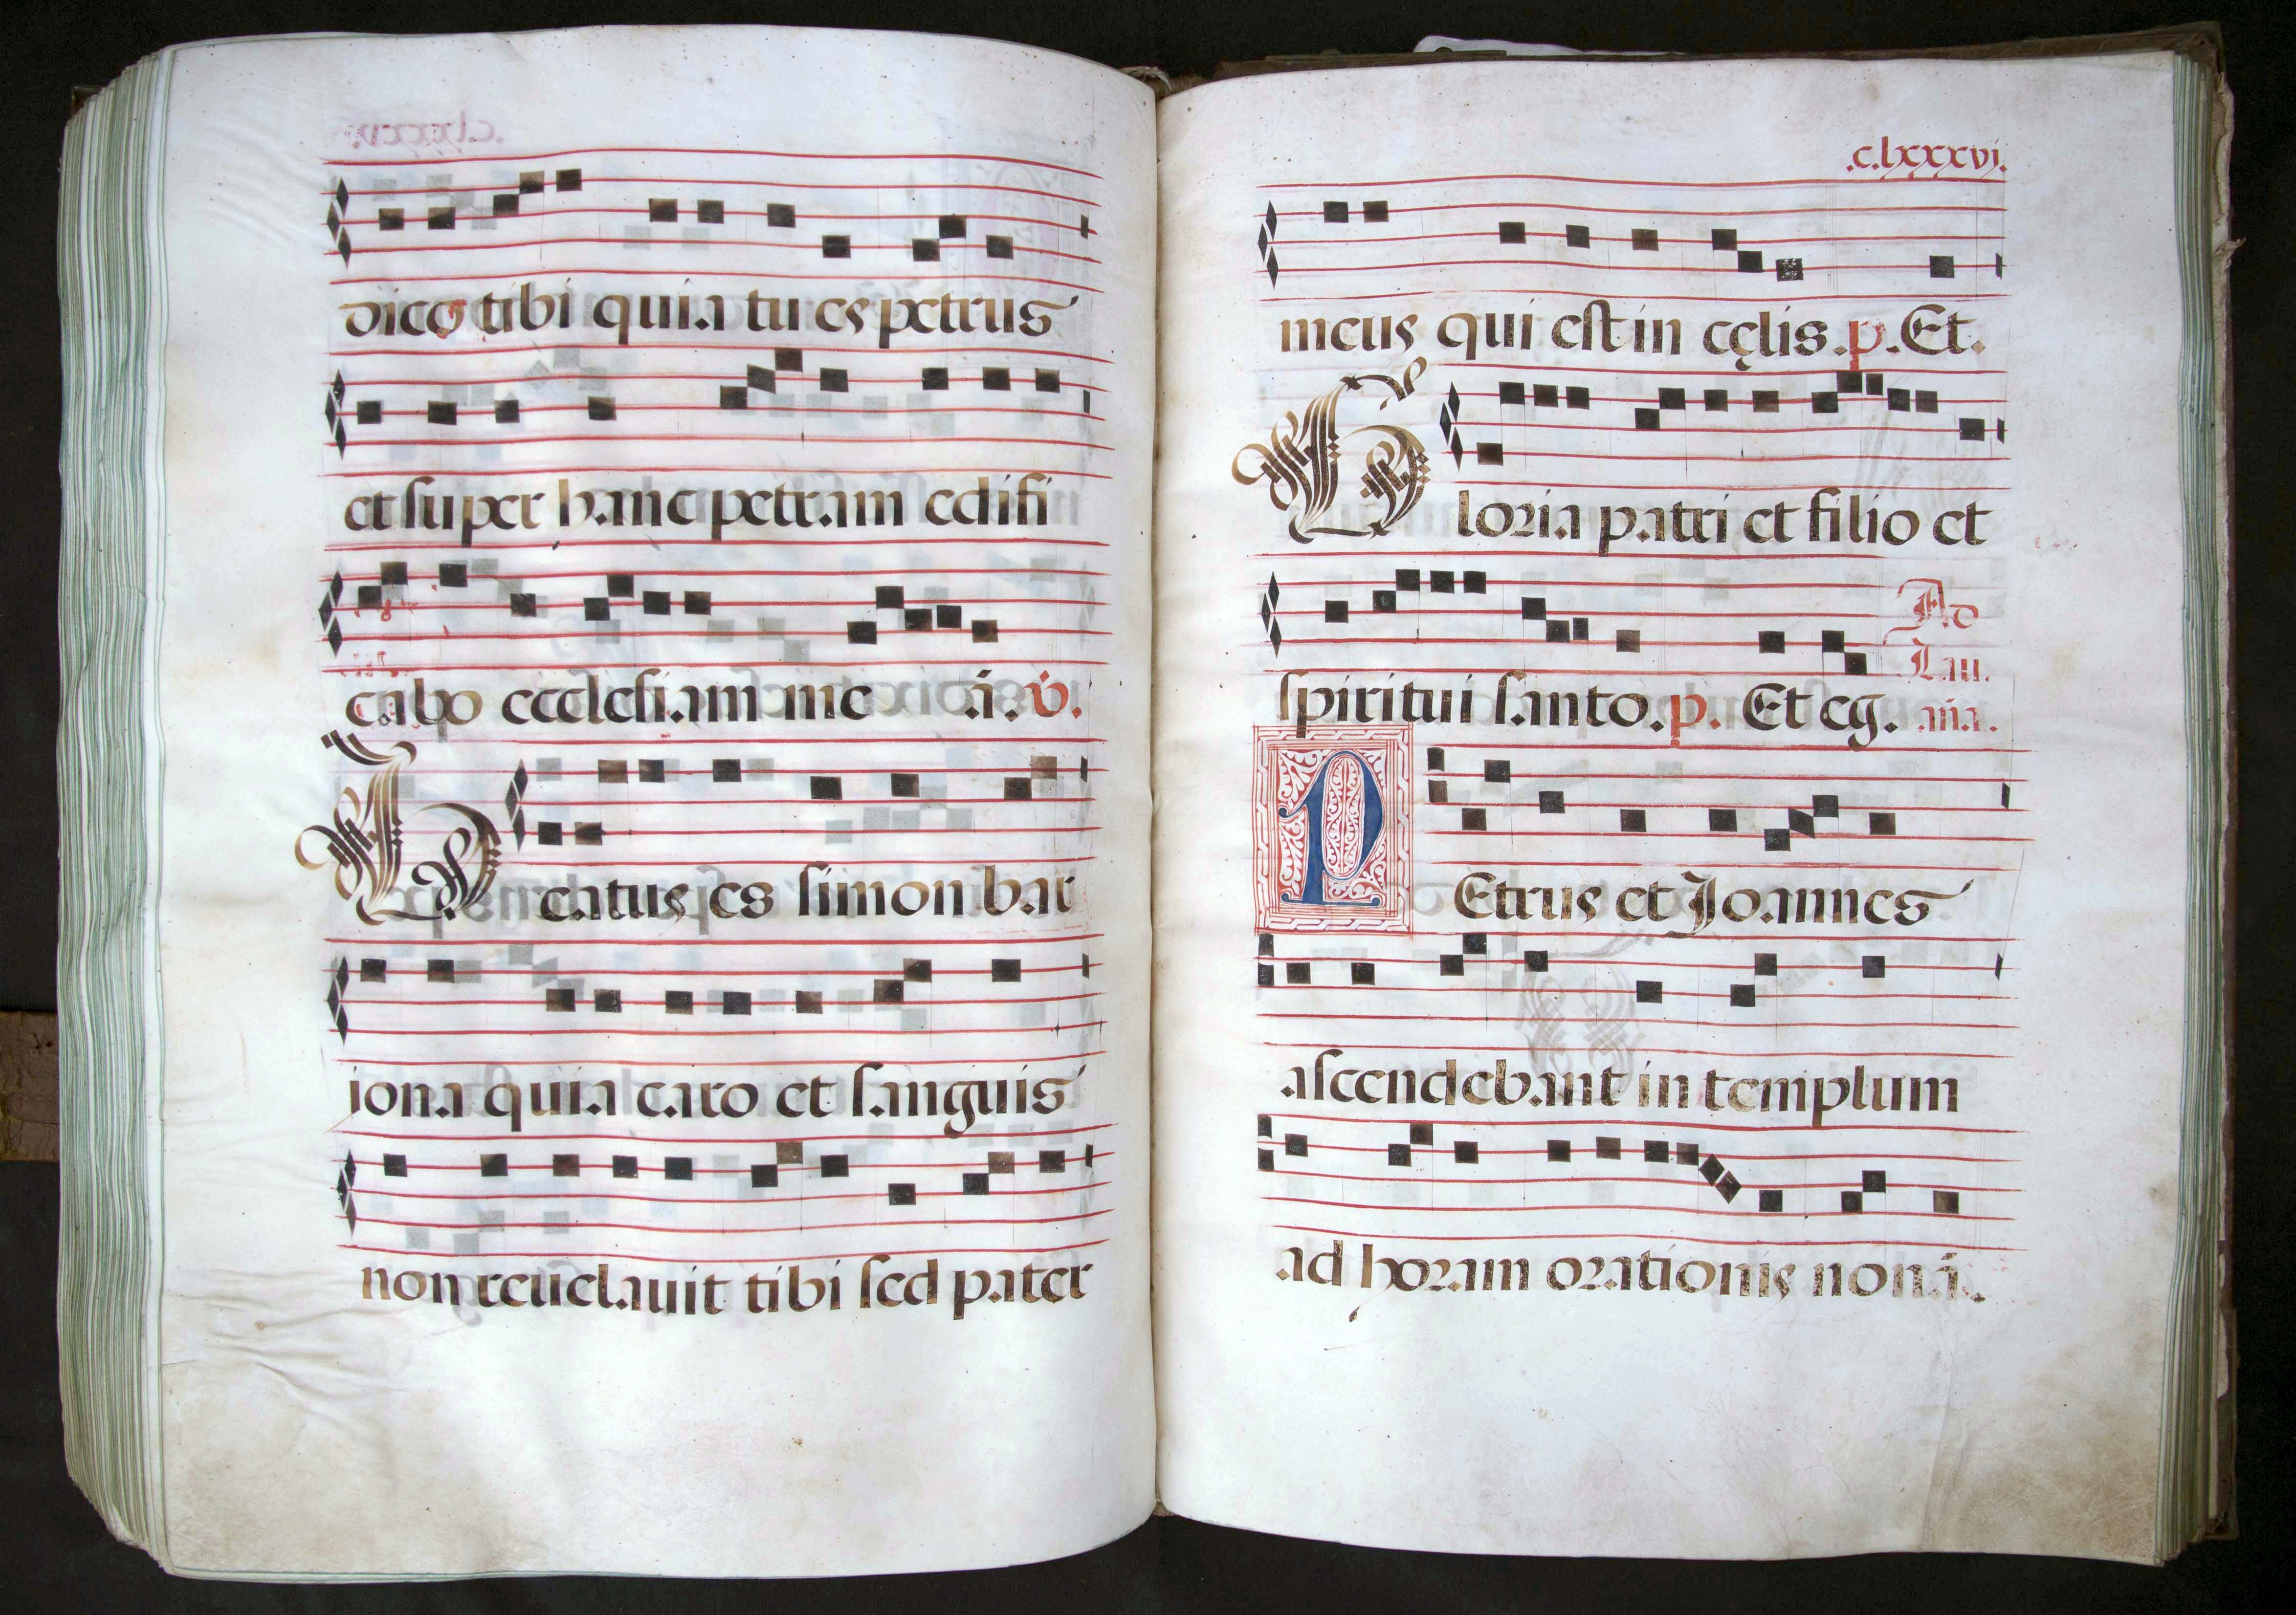 dico tibi quia tu es petrus
et super hanc petram edifi
cabo ecclesiam me ā. v̇.
Beatus es simon bar
iona quia caro et sanguis
non reuelauit tibi sed pater
.c.lxxxvi.
meus qui est in cęlis .p. Et.
Gloria patri et filio et
Ad
Lau.
spiritui santo. p. Et eg. aña.
PEtrus et Joannes
ascendebant in templum
ad horam orationis nonā.